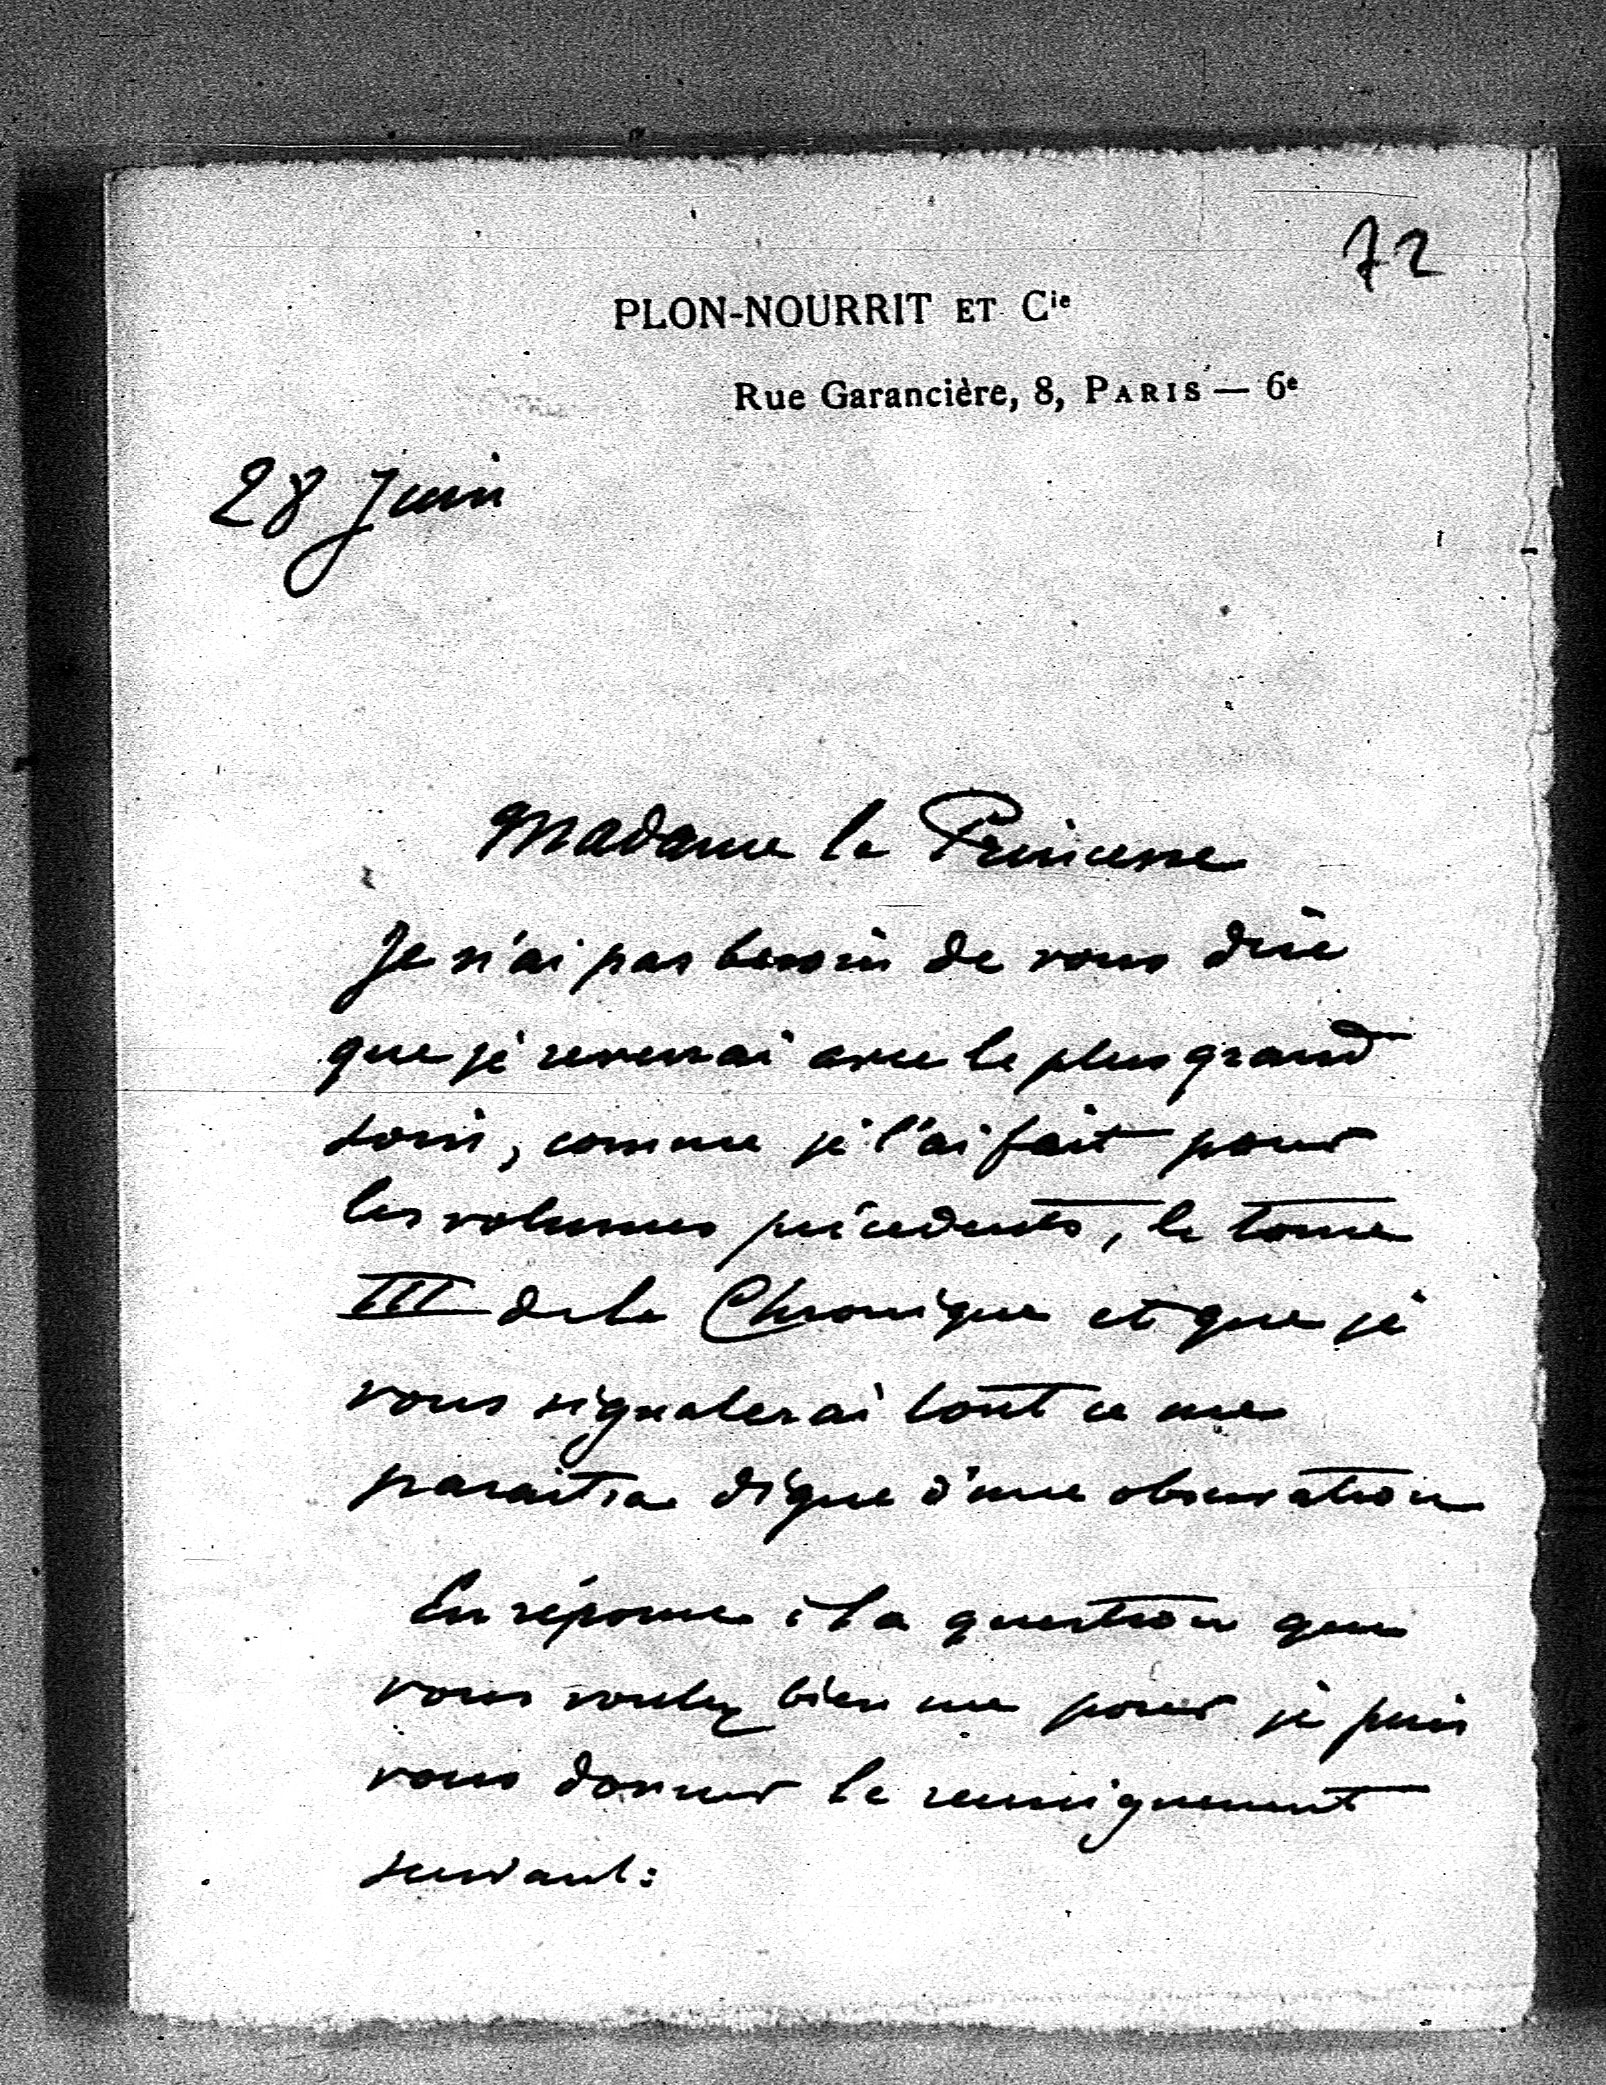 72
PLON-NOURRIT ET Cie
Rue Garancière, 8, PARIS — 6e
28 Juin
Madame la Princesse
Je n'ai pas besoin de vous dire
que je reverrai avec le plus grand
soin, comme je l'ai fait pour
les volumes précédents, le tome
III de la Chronique et que je
vous signalerai tout ce me
paraitra digne d'une observation
En réponse à la question que
vous voulez bien me poser je puis
vous donner le renseignement
suivant: